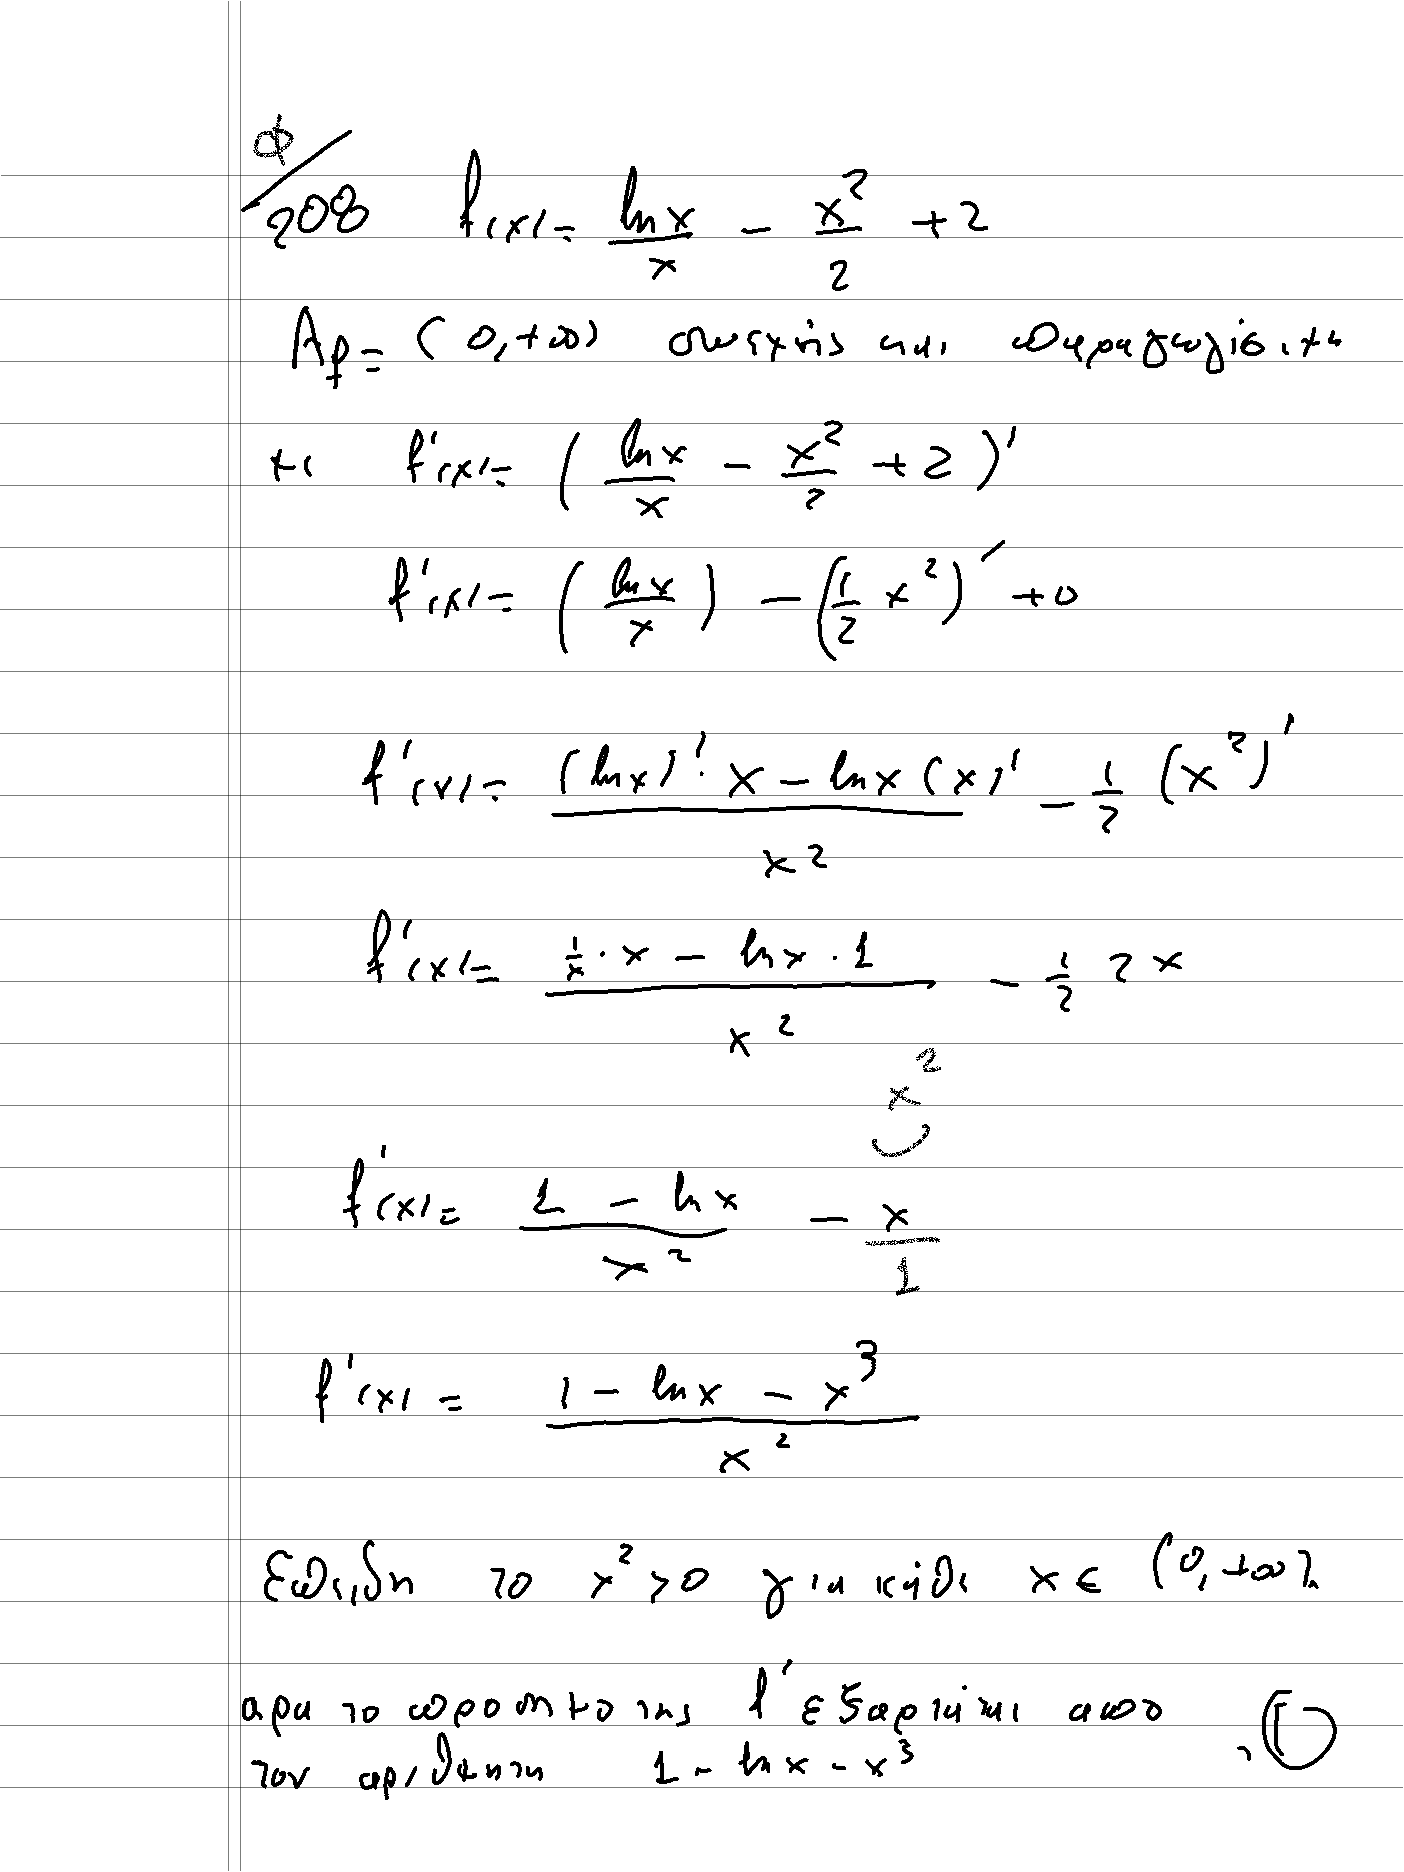 Φ/208 f(x) = lnx/x - x²/2 + 2
Af = (0, +∞) συνεχής και παραγωγίσιμη
με f'(x) = (lnx/x - x²/2 + 2)'
f'(x) = (lnx/x) - (1/2 x²)' + 0
f'(x) = ((lnx)'·x - lnx (x)')/x² - 1/2 (x²)'
f'(x) = (1/x · x - lnx · 1)/x² - 1/2 2x
x²
f'(x) = (1 - lnx)/x² - x/1
f'(x) = (1 - lnx - x³)/x²
Επειδη το x² > 0 για κάθε x ∈ (0, +∞)
αρα το προσημο της f' εξαρτάται απο
τον αριθμητη 1 - lnx - x³